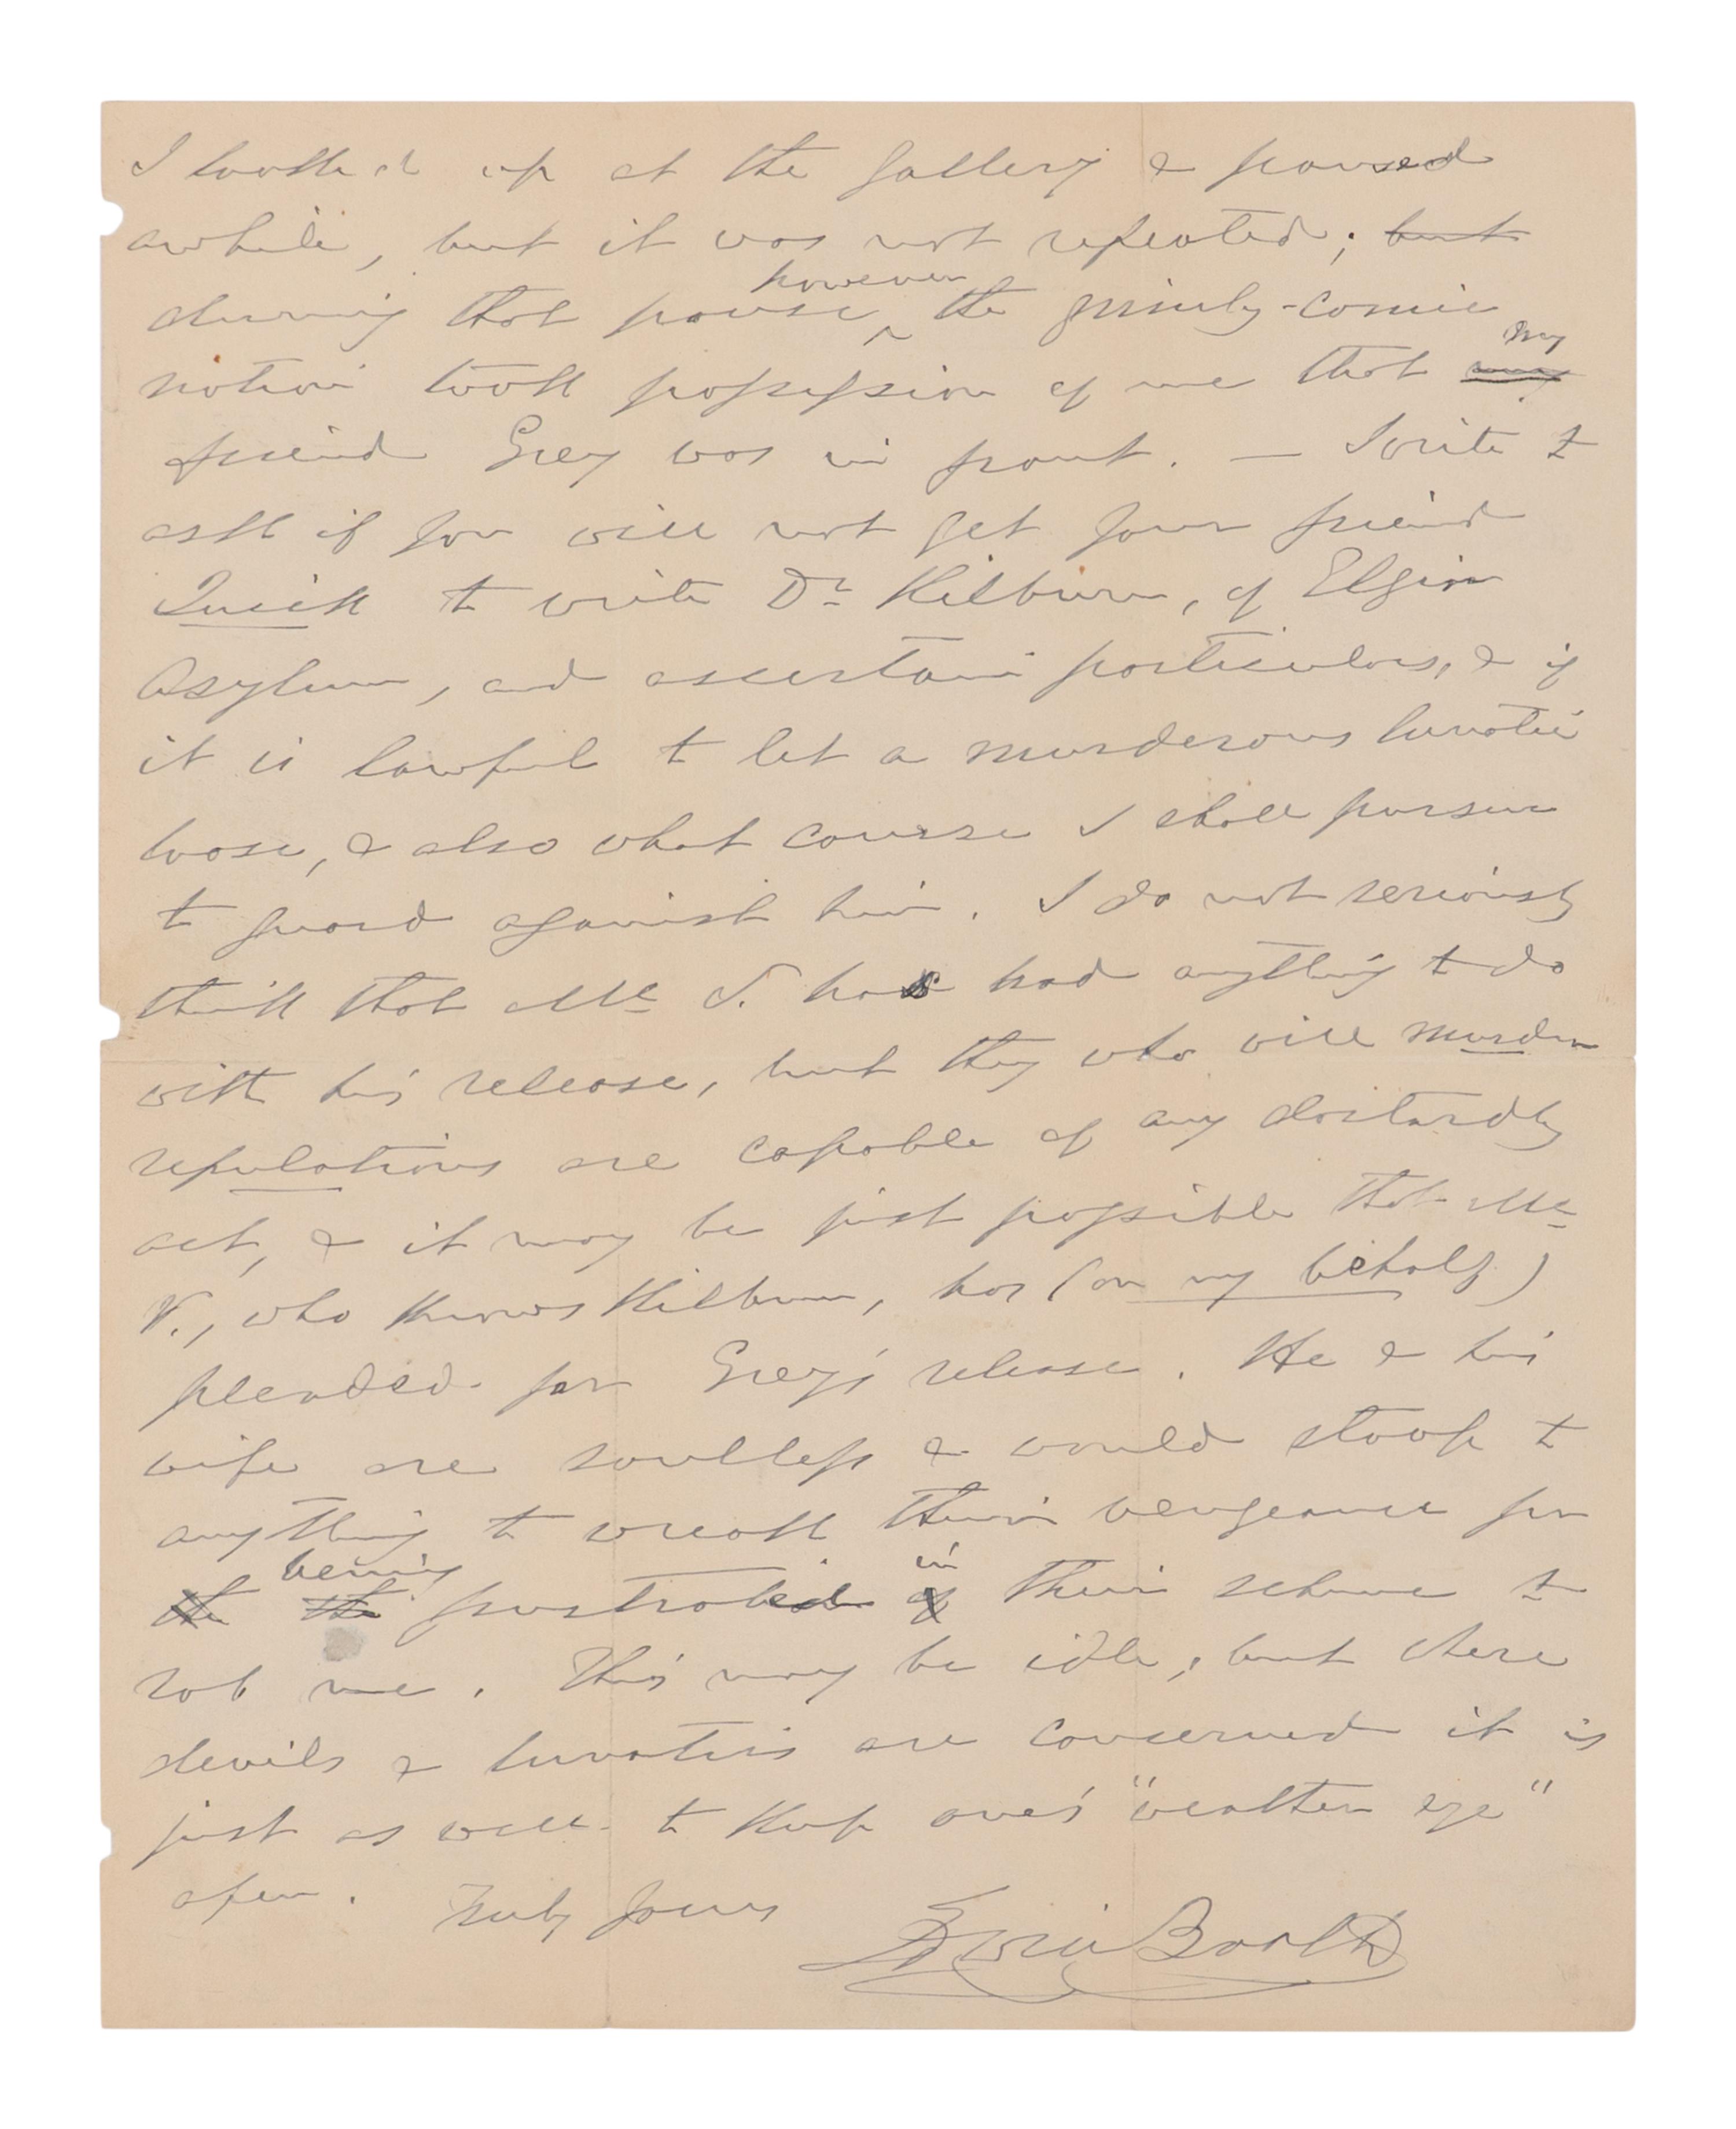 I looked up at the gallery & paused
awhile, but it was not repeated; but
however
during that pause ^ the grimly-comic
my
notion took possession of me that
friend Grey was in front. — I write to
ask if you will not get your friend
Quick to write Dr Kilburn, of Elgin
Asylum, and ascertain particulars, & if
it is lawful to let a murderous lunatic
loose, & also what course I shall pursue
to guard against him. I do not seriously
think that Mc V. has had anything to do
with his release, but they who will murder
reputations are capable of any dastardly
act, & it may be just possible that Mc
V., who knows Kilburn, has (on my behalf)
pleaded for Grey's release. He & his
wife are soulless & would stoop to
anything to wreak their vengeance for
being in
the the frustrated of their scheme to
rob me. This may be idle, but where
devils & lunatics are concerned it is
just as well to keep one's "weather eye"
open. Truly yours
Edwin Booth